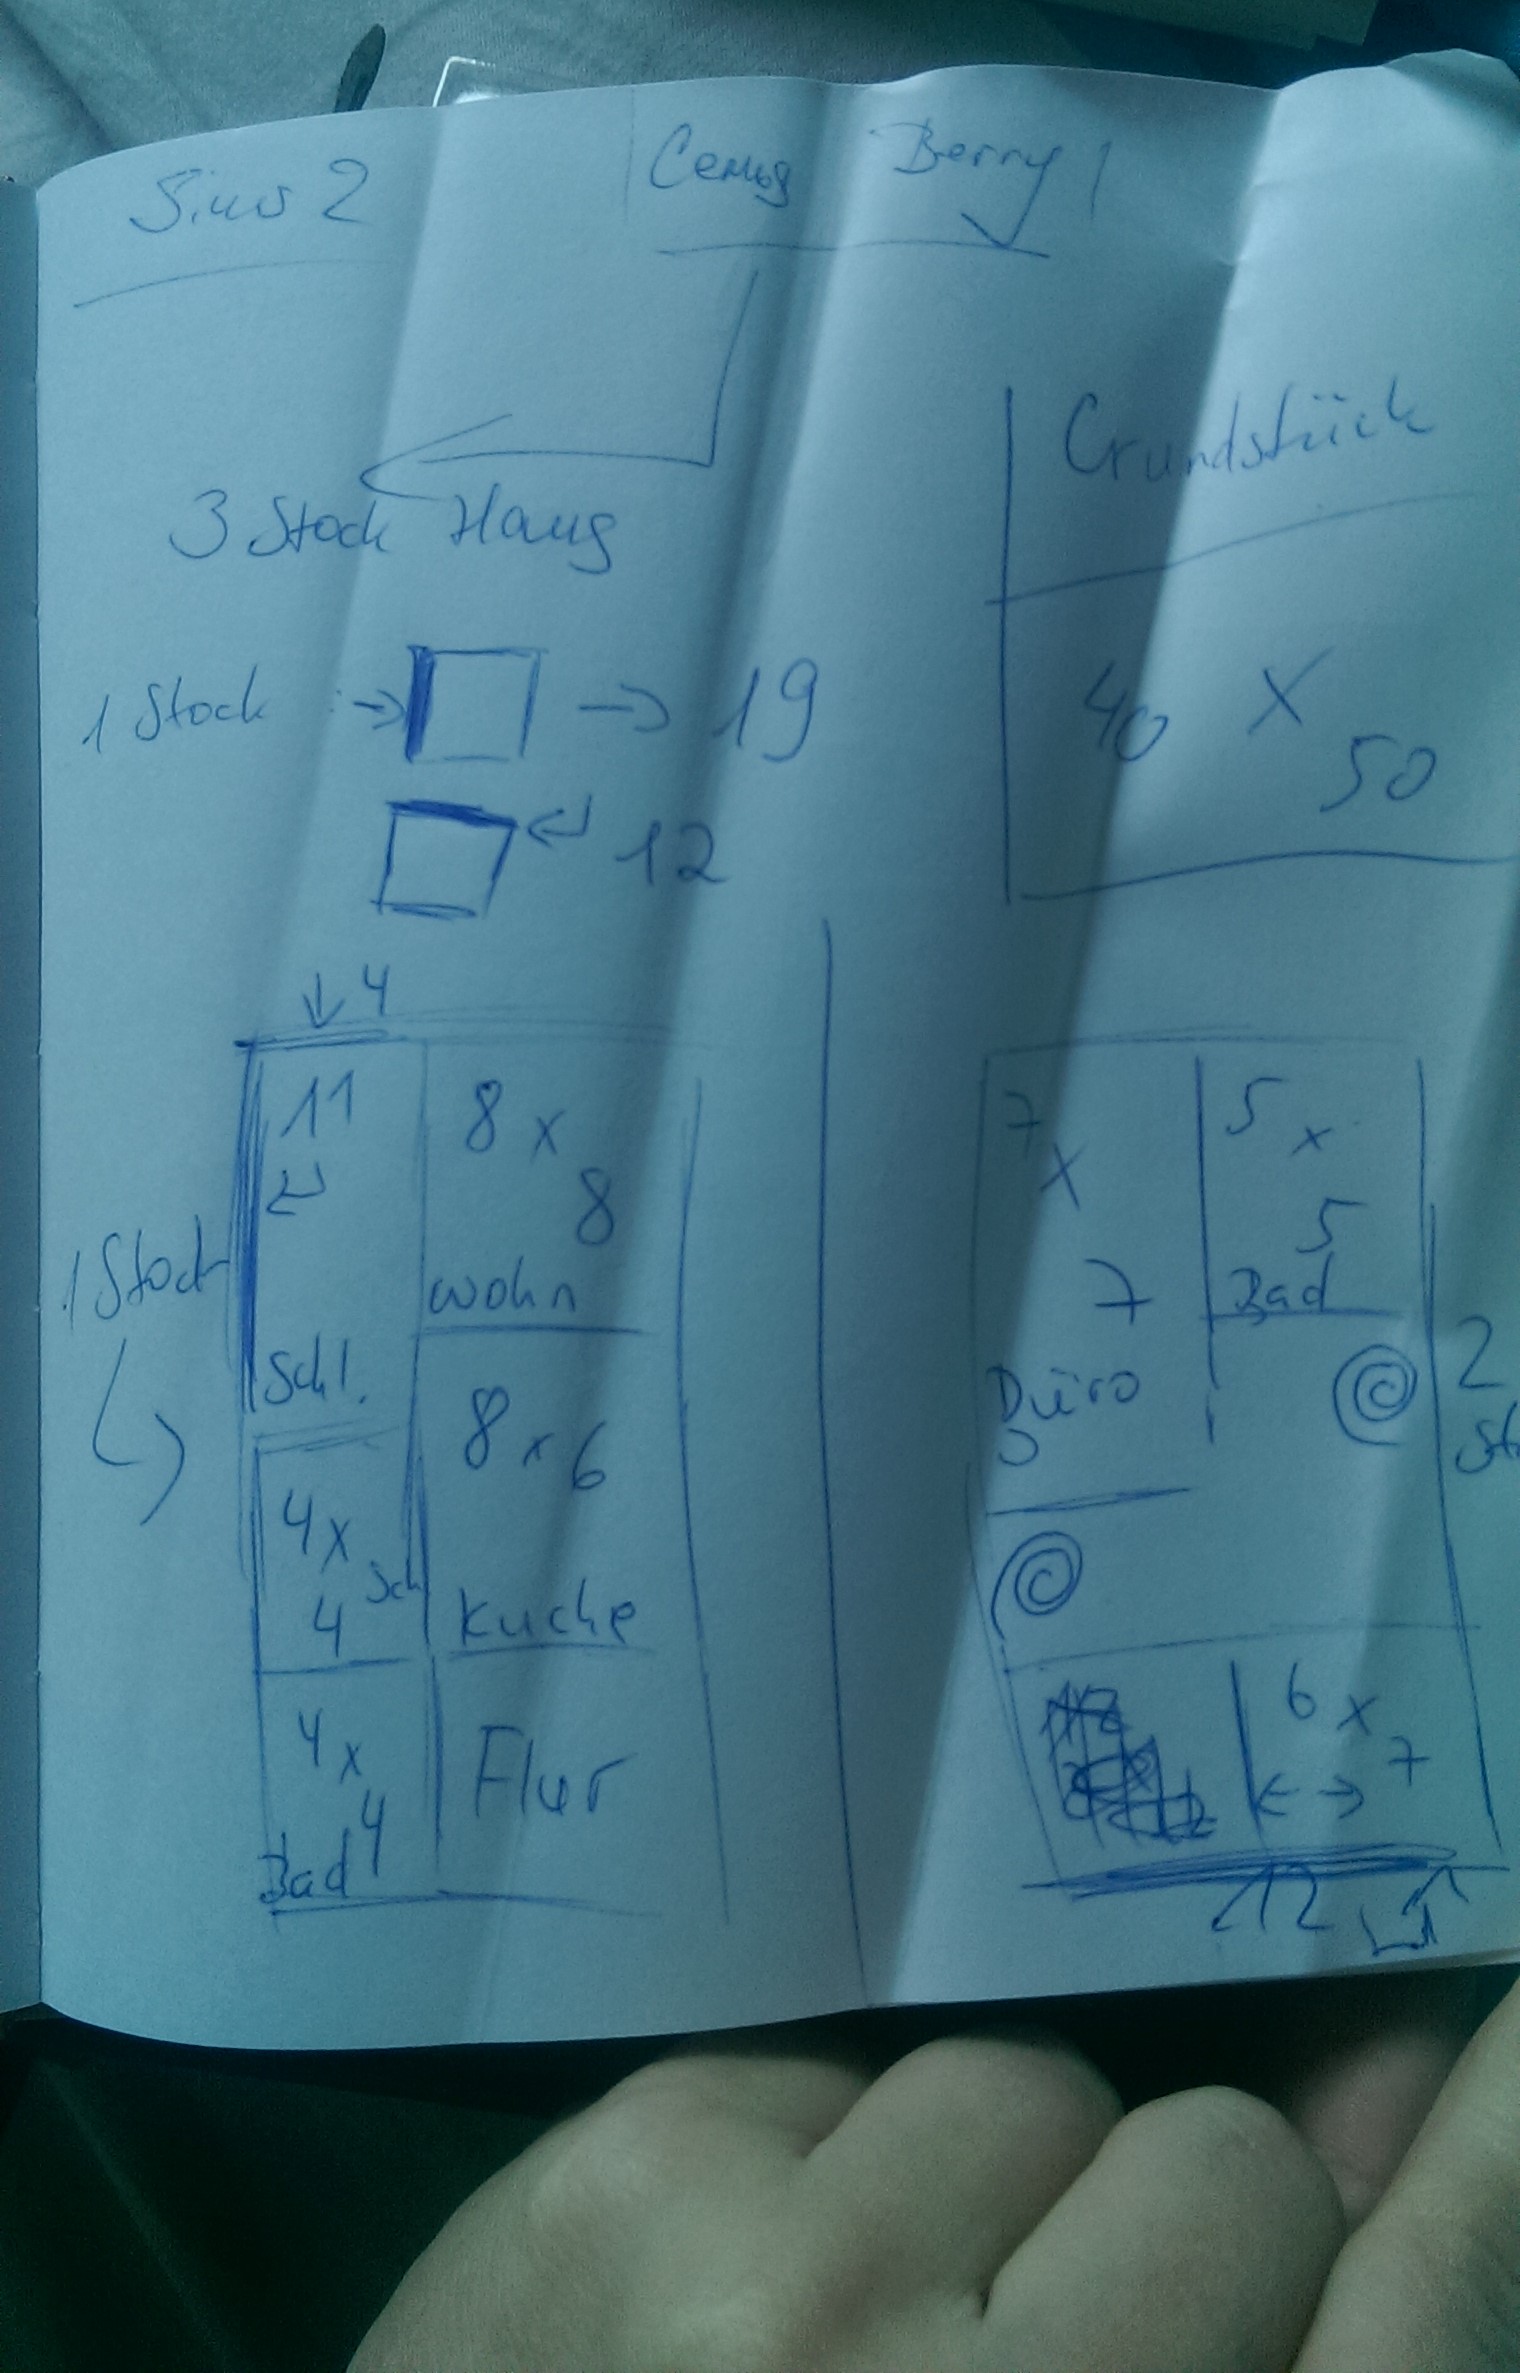 Sims 2
Семья Berry
3 Stock Haus
Grundstück
40 x 50
1 Stock → → 19
12
4
11
Schl.
8 x 8
wohn
1 Stock
8 x 6
kuche
4 x 4
Sch
4 x 4
Bad
Flur
7 x 7
Büro
5 x 5
Bad
2
St
6 x 7
12